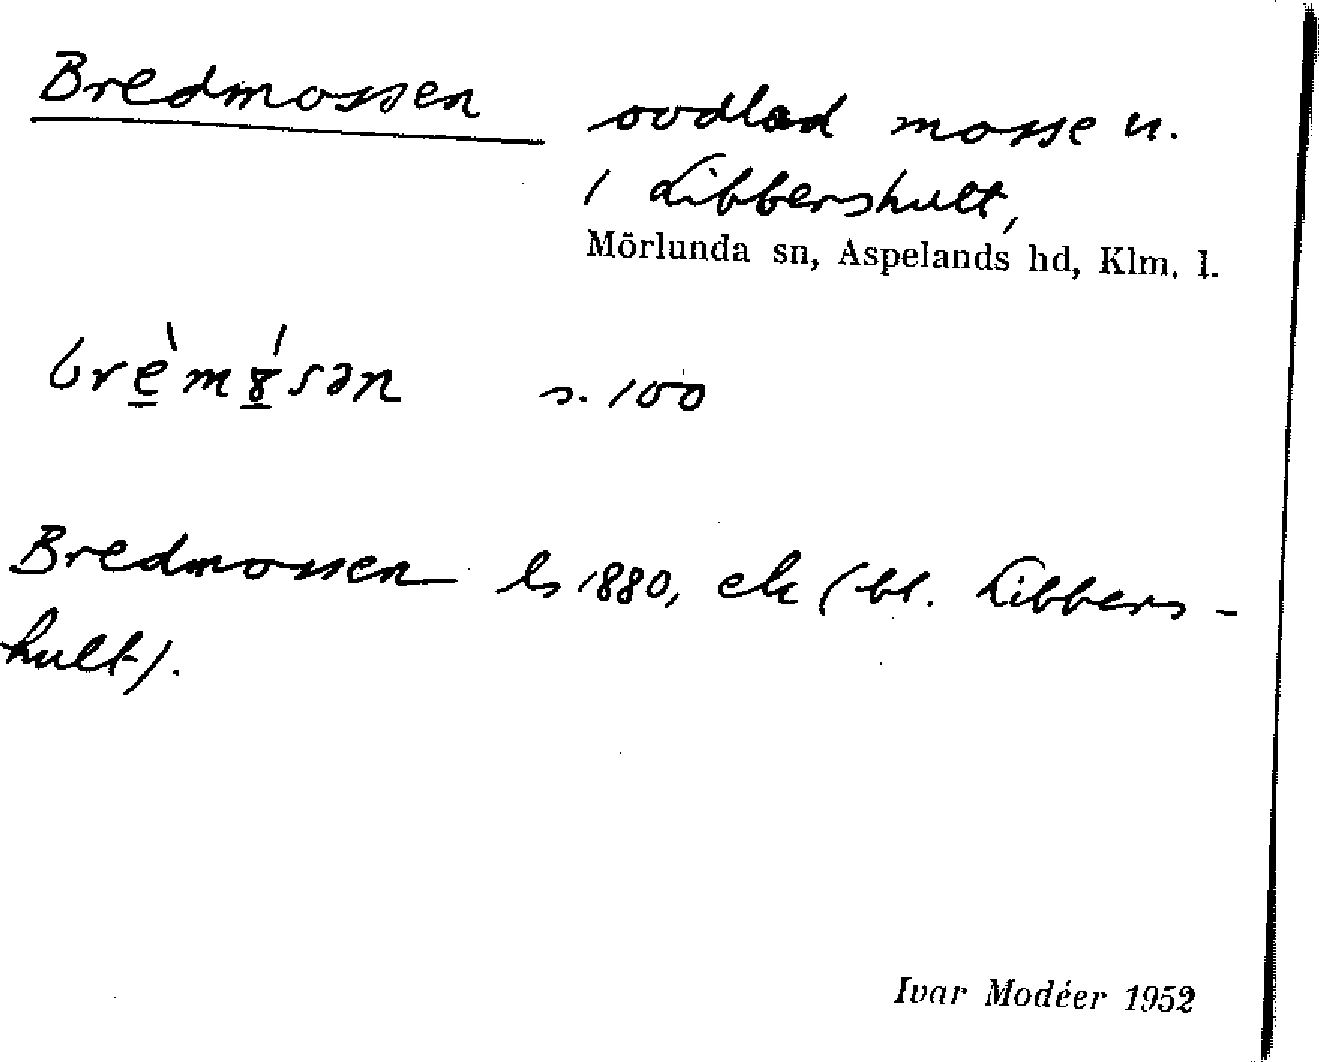 Bredmossen oodlad mosse u.
/ Libbershult,
Mörlunda sn, Aspelands hd, Klm. l.
brè̲mȣ̲́sən s. 100
Bredmossen ls 1880, ek (bl. Libbers-
hult).
Ivar Modéer 1952